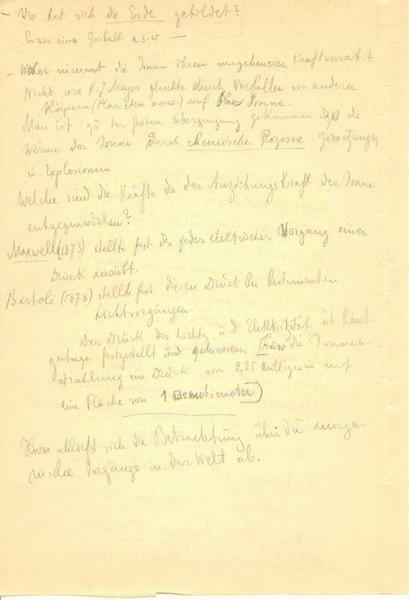 Wie hat sich die Erde gebildet?
Es war eine Gasball u.s.w —
— Woher nimmt die Sonne ihren ungeheuren Kraftvorrat?
Nicht wie R. J. Mayer glaubte durch Verfallen von anderen
Körpern (Planeten usw.) auf Sonne.
Man ist zu der Überzeugung gekommen daß die
Wärme der Sonne durch chemische Prozesse Zersetzungen
u Explosionen
Welche sind die Kräfte die der Anziehungskraft der Sonne
entgegenwirken?
Maxwell (1873) stellte fest daß jeder elektrischer Vorgang einen
Druck ausübt.
Bartoli (1878) stellte fest diesen Druck bei bestimmten
Lichtvorgängen.
Der Druck des Lichts u.d. Elektrizität ist heut
zutage festgestellt und gemessen. die Sonnen-
strahlung ein Druck von 2,25 milligram auf
eine Fläche von 1 Centimeter)
schließt sich die Betrachtung über die anorga-
nische Vorgänge in der Welt ab.